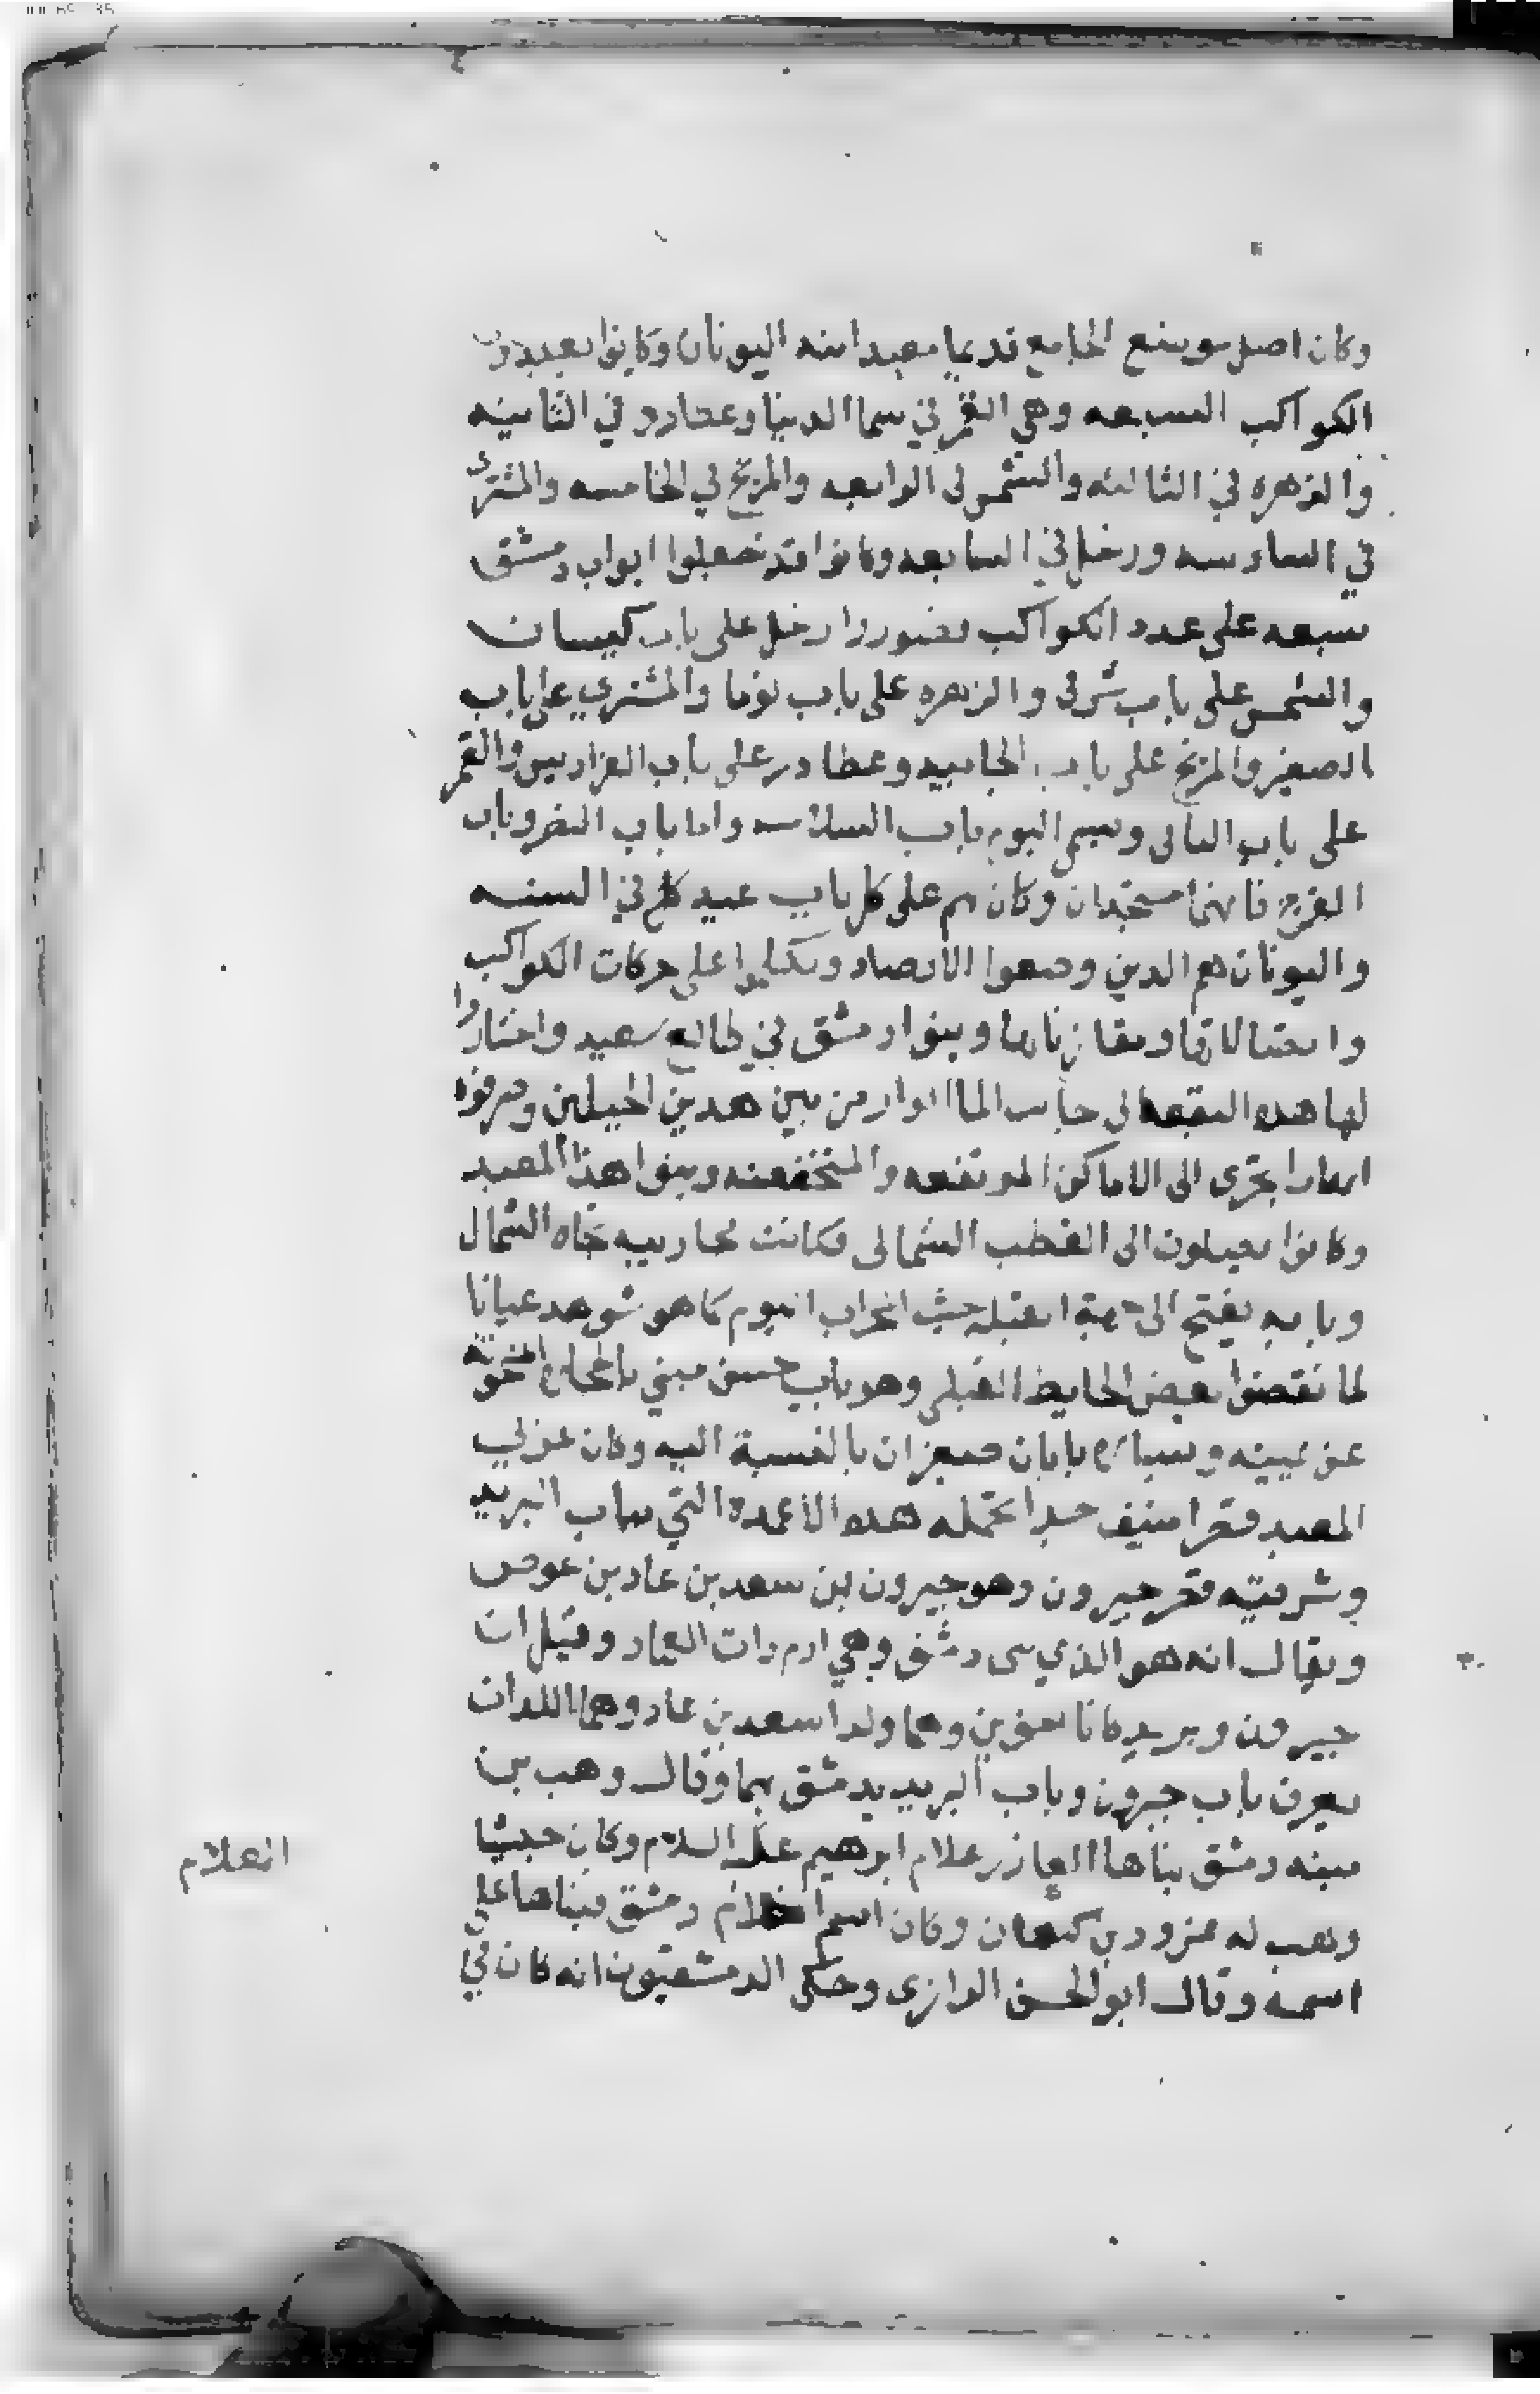 وكان اصل موضع الجامع قديما معبد ابنته اليونان وكانوا يعبدون
الكواكب السبعه وهي القمر في سما الدنيا وعطارد في الثانيه
والزهره في الثالثه والشمس في الرابعه والمريخ في الخامسه والمشتري
في السادسه وزحل في السابعه وكانوا قد جعلوا ابواب دمشق
سبعه على عدد الكواكب فصوروا زحل على باب كيسان
والشمس على باب شرقي والزهره على باب توما والمشتري على باب
الصغير والمريخ على باب الجابيه وعطارد على باب الفراديس والقمر
على باب الثاني ويسمى اليوم باب السلامه واما باب النصر وباب
الفرج فانهما مستجدان وكان لهم على كل باب عيد كل في السنه
واليونان هم الدين وضعوا الارصاد وتكلموا على حركات الكواكب
واتصالاتها ومقارناتها وبنوا دمشق في طالع سعيد واختاروا
لها هذه البقعه الى جانب الما الوارد من بين هدين الجبلين وصرفوه
انهارا يجرى الى الاماكن المرتفعه والمنخفضه وبنوا هذا المعبد
وكانوا يصلون الى القطب الشمالى فكانت محاريبه تجاه الشمال
وبابه يفتح الى جهة القبله حيث المحراب اليوم كما هو شوهد عيانا
لما نقضوا بعض الحايط القبلي وهو باب حسن مبني بالحجاره المنحوته
عن يمينه ويساره بابان صغيران بالنسبة اليه وكان غربي
المعبد قصرا منيف جدا تحمله هده الاعمده التي بباب البريد
وشرقيه قصر جيرون وهو جيرون بن سعد بن عاد بن عوص
ويقال انه هو الذي بنى دمشق وهي ارم دات العماد وقيل ان
جيرون وبريد كانا اخوين وهما ولدا سعد بن عاد وهما اللدان
يعرف باب جيرون وباب البريد بدمشق بهما وقال وهب بن
منبه دمشق بناها العازر غلام ابرهيم عليه السلام وكان حبشيا
وهب له نمرود بن كنعان وكان اسم الغلام دمشق فبناها على
الغلام
اسمه وقال ابو الحسن الرازى وحكى الدمشقيون انه كان في